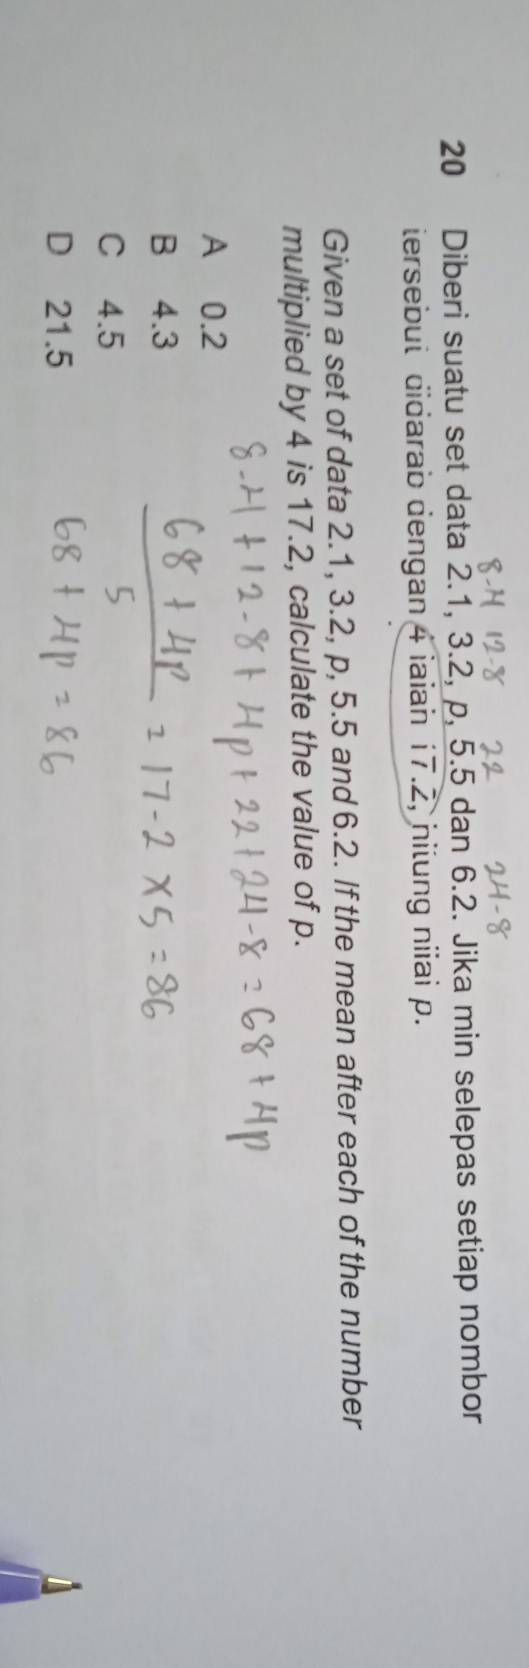 8.4 12.8 22 24.8
20 Diberi suatu set data 2.1, 3.2, p, 5.5 dan 6.2. Jika min selepas setiap nombor
tersebut didarab dengan 4 ialah 17.2, hitung nilai p.
Given a set of data 2.1, 3.2, p, 5.5 and 6.2. If the mean after each of the number
multiplied by 4 is 17.2, calculate the value of p.
8.4 + 12.8 + 4p + 22 + 24.8 = 68 + 4p
A 0.2
B 4.3
C 4.5
D 21.5
68 + 4p
5
= 17.2 × 5 = 86
68 + 4p = 86